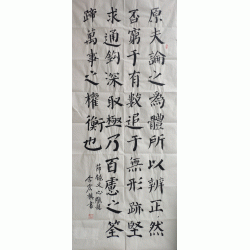 原夫論之為體所以辨正然
否窮于有數追于無形跡堅
求通鈎深取極乃百慮之筌
蹄萬事之權衡也
節錄文心雕龍